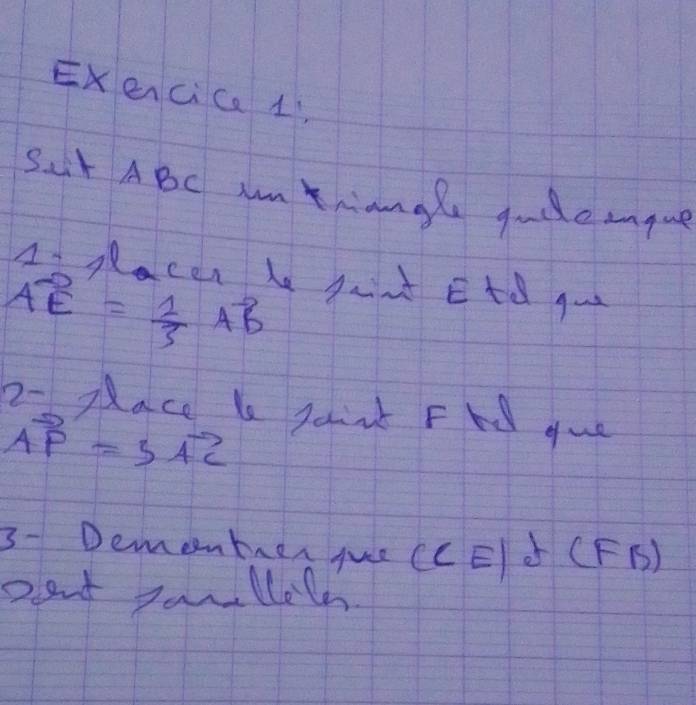 Exercice 1:
Soit ABC un triangle quelconque
1- placer le point E tel que
AE = 1/3 AB
2- place le point F tel que
AF = 3 AC
3- Demontrer que (CE) et (FB)
sont parallèles.